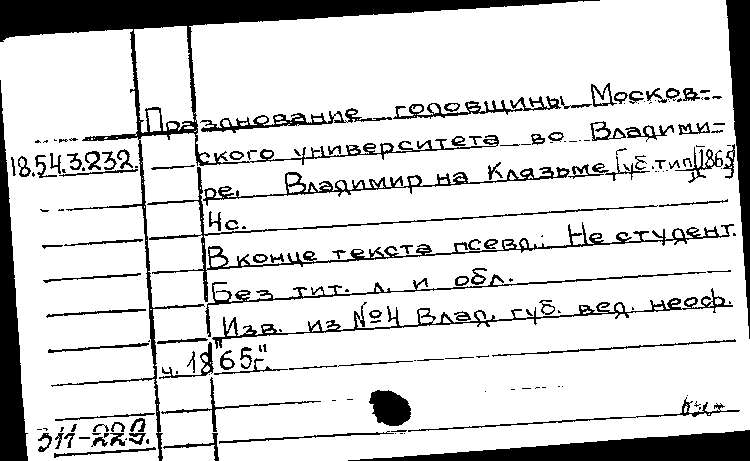 Празднование годовщины Москов-
18.54.3.232. ского университета во Владими-
ре. Владимир на Клязьме, [губ. тип.], [1865]
4с.
В конце текста псевд.: Не студент.
Без тит. л. и обл.
Изв. из №4 Влад. губ. вед. неоф.
ч. 1865г.
311-229.